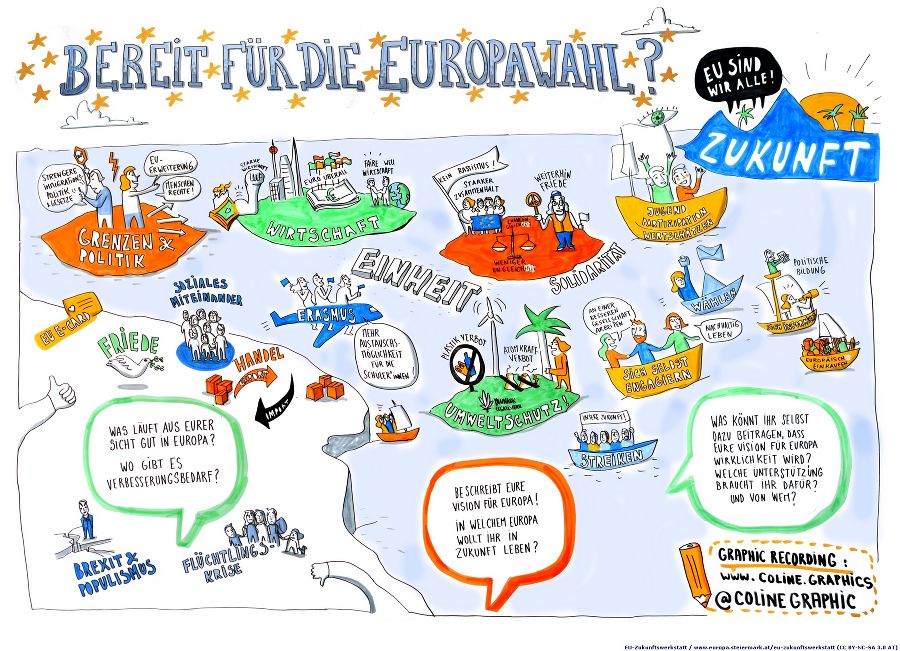 BEREIT FÜR DIE EUROPAWAHL?
EU SIND
WIR ALLE!
ZUKUNFT
STRENGERE
IMMIGRATIONS
POLITIK &
GESETZE
EU-
ERWEITERUNG
MENSCHEN
RECHTE!
GRENZEN &
POLITIK
STARKE WIRTSCHAFT
EURO ÜBERALL
FAIRE WELT
WIRTSCHAFT
WIRTSCHAFT
KEIN RASSISMUS!
STARKER
ZUSAMMENHALT
WEITERHIN
FRIEDE
WENIGER
UNGLEICHHEIT
SOLIDARITÄT
EINHEIT
JUGEND
PARTIZIPATION
WERTSCHÄTZEN
WÄHLEN
POLITISCHE
BILDUNG
EUROPÄISCH
EINKAUFEN
EU E-CARD
SOZIALES
MITEINANDER
FRIEDE
HANDEL
EXPORT
IMPORT
ERASMUS
MEHR
AUSTAUSCHS-
MÖGLICHKEIT
FÜR DIE
SCHÜLER*INNEN
PLASTIK VERBOT
ATOMKRAFT
VERBOT
UMWELTSCHUTZ!
AN EINER
BESSEREN
GESELLSCHAFT
ARBEITEN
NACHHALTIG
LEBEN
SICH SELBST
ENGAGIEREN
UNSERE ZUKUNFT
STREIKEN
WAS LÄUFT AUS EURER
SICHT GUT IN EUROPA?
WO GIBT ES
VERBESSERUNGSBEDARF?
BESCHREIBT EURE
VISION FÜR EUROPA!
IN WELCHEM EUROPA
WOLLT IHR IN
ZUKUNFT LEBEN?
WAS KÖNNT IHR SELBST
DAZU BEITRAGEN, DASS
EURE VISION FÜR EUROPA
WIRKLICHKEIT WIRD?
WELCHE UNTERSTÜTZUNG
BRAUCHT IHR DAFÜR?
UND VON WEM?
BREXIT &
POPULISMUS
FLÜCHTLINGS-
KRISE
GRAPHIC RECORDING:
WWW.COLINE.GRAPHICS
@COLINEGRAPHIC
EU-Zukunftswerkstatt / www.europa.steiermark.at/eu-zukunftswerkstatt (CC BY-NC-SA 3.0 AT)